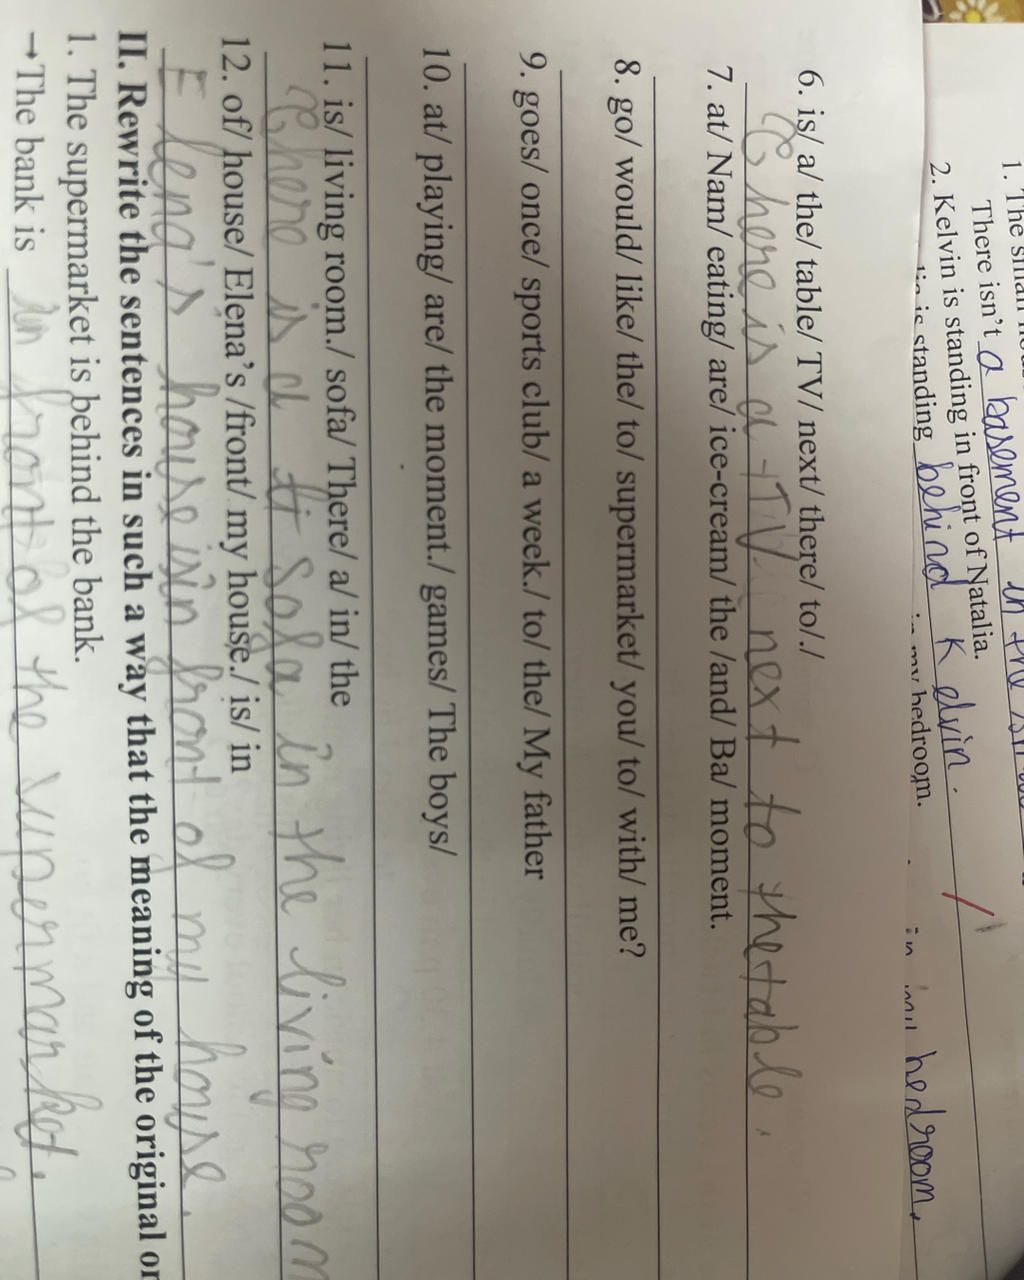 1. The small
There isn't a basement in the
2. Kelvin is standing in front of Natalia.
is standing behind Kelvin.
in my bedroom.
in my bedroom.
6. is/ a/ the/ table/ TV/ next/ there/ to/./
There is a TV next to the table.
7. at/ Nam/ eating/ are/ ice-cream/ the /and/ Ba/ moment.
8. go/ would/ like/ the/ to/ supermarket/ you/ to/ with/ me?
9. goes/ once/ sports club/ a week./ to/ the/ My father
10. at/ playing/ are/ the moment./ games/ The boys/
11. is/ living room./ sofa/ There/ a/ in/ the
There is a sofa in the living room
12. of/ house/ Elena's /front/ my house./ is/ in
Elena's house is in front of my house.
II. Rewrite the sentences in such a way that the meaning of the original
1. The supermarket is behind the bank.
→ The bank is in front of the supermarket.